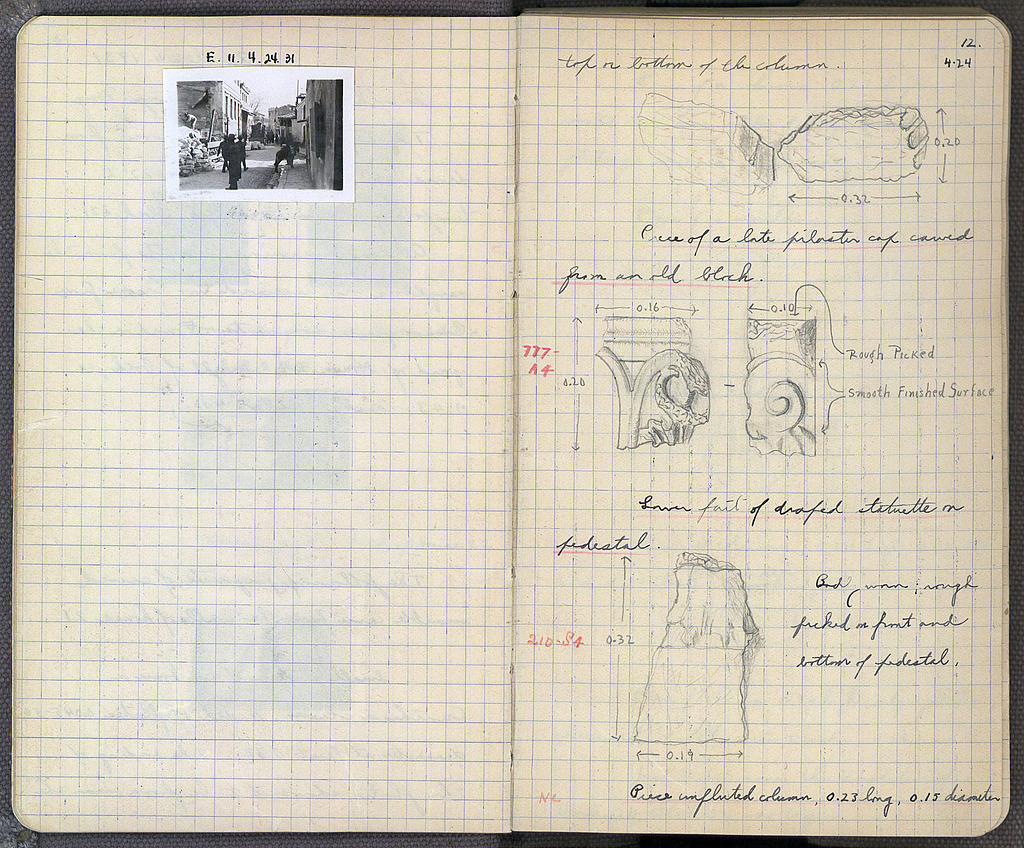 E. 11. 4. 24. 31
12.
4-24
top or bottom of the column.
0.20
0.32
Piece of a late pilaster cap carved
from an old block.
0.16
0.10
777-
A4
0.20
Rough Picked
Smooth Finished Surface
Lower part of draped statuette on
pedestal.
Badly worn; rough
picked on front and
bottom of pedestal.
210-S4
0.32
0.19
Piece unfluted column, 0.23 long, 0.15 diameter